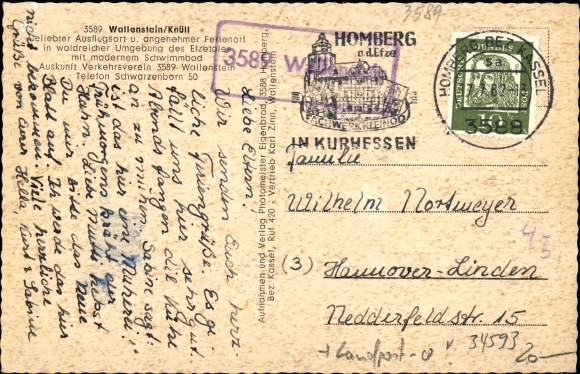 3589 Wallenstein/Knüll
Beliebter Ausflugsort u. angenehmer Ferienort
in waldreicher Umgebung des Elzetales
mit modernem Schwimmbad
Auskunft Verkehrsverein 3589 Wallenstein
Telefon Schwarzenborn 50
Liebe Eltern!
Wir senden Euch herz.
liche Feriengrüße. Es ge-
fällt uns hier sehr gut.
Abends fangen die Kühe
an zu muhen. Sabine sagt:
ist das hier eine Muherei!!
Frühmorgens kräht der
Hahn. Liebe Mutti hebst
Du mir bitte das Neue
Blatt auf. Ich werde das hier
nicht bekommen. Viele herzliche
Grüße von Eurer Hella, Kurt & Sabine
Aufnahmen und Verlag Photometer Eigenbrod, 3588 Homberg,
Bez. Kassel, Ruf 420 - Vertrieb Karl Zinn, Wallenstein
3589
3589 W
HOMBERG
a.d.Efze
FACHWERKKLEINOD
IN KURHESSEN
HOMBERG BEZ. KASSEL
3588
DEUTSCHE
Familie
Wilhelm Nortmeyer
(3) Hannover-Linden
Nedderfeldstr. 15
Landpost-
34593
20-